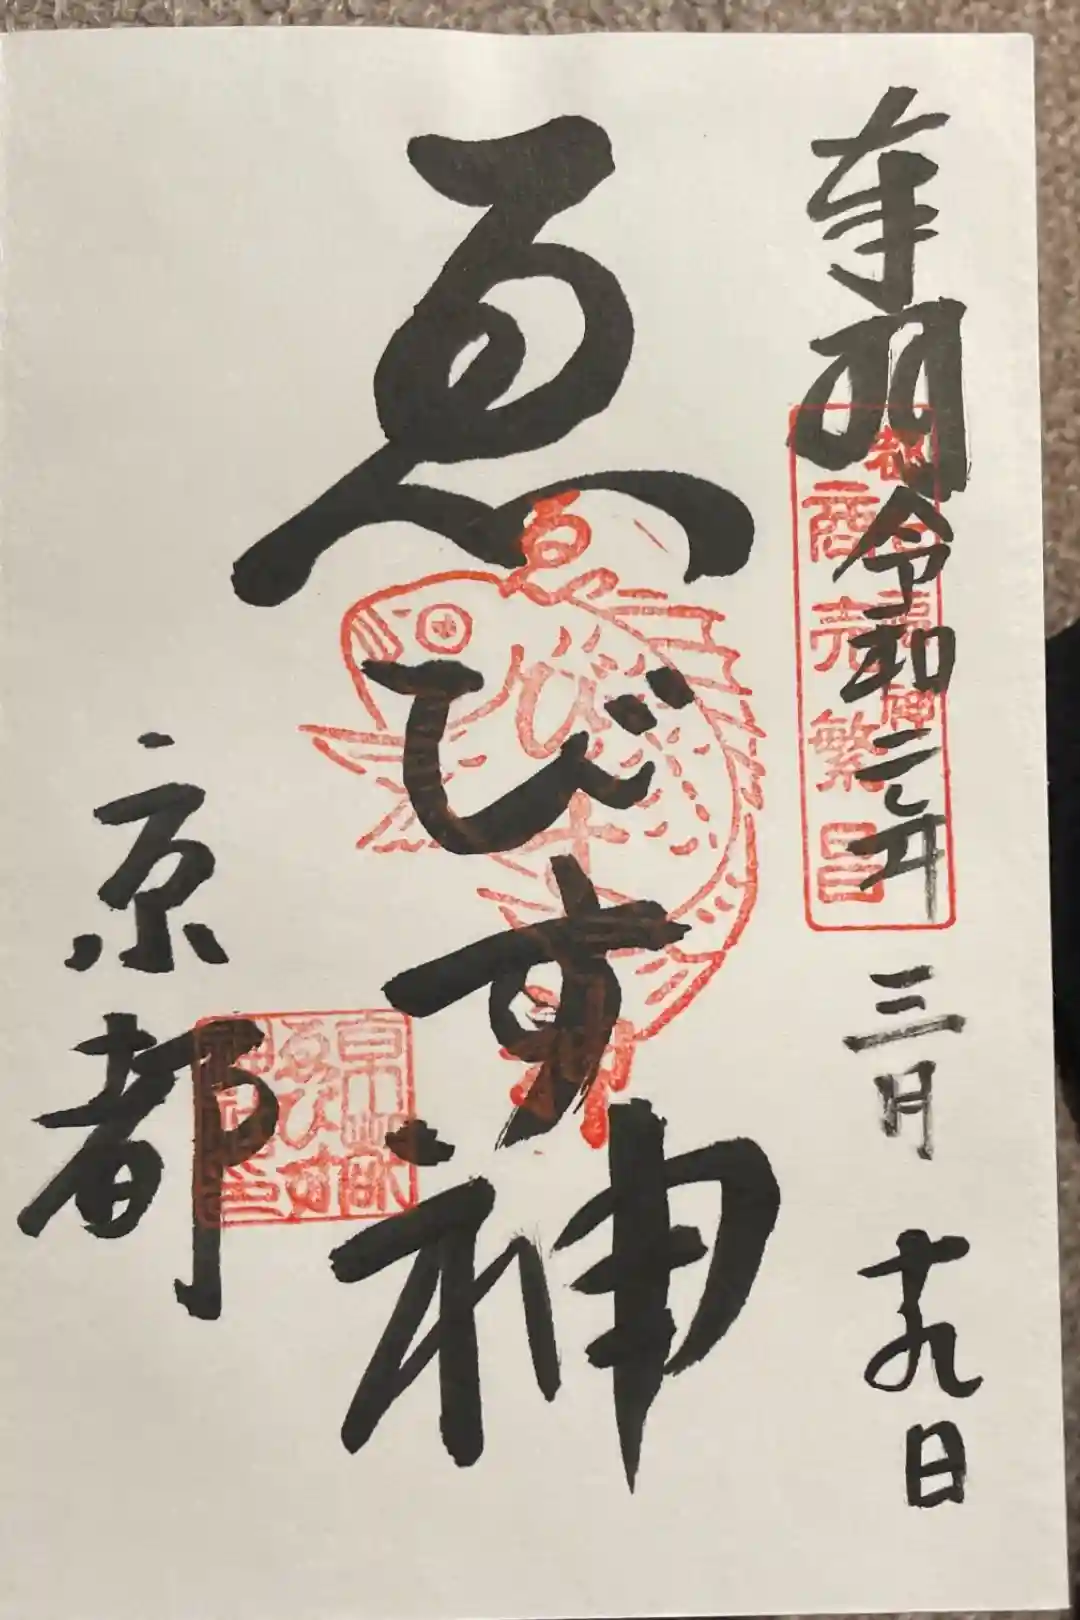 奉拝
令和二年
三月
十九日
商売繁昌
ゑびす神
ゑびす
京都
京都
ゑびす
神社印